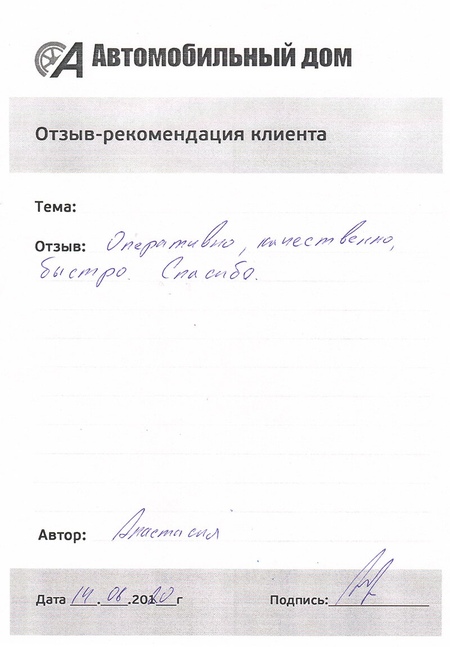 Автомобильный дом
Отзыв-рекомендация клиента
Тема:
Отзыв: Оперативно, качественно,
быстро. Спасибо.
Автор: Анастасия
Дата 14.06.2020г Подпись: